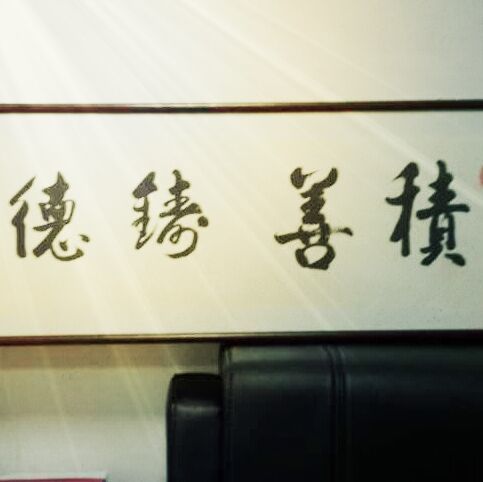 積善鑄德